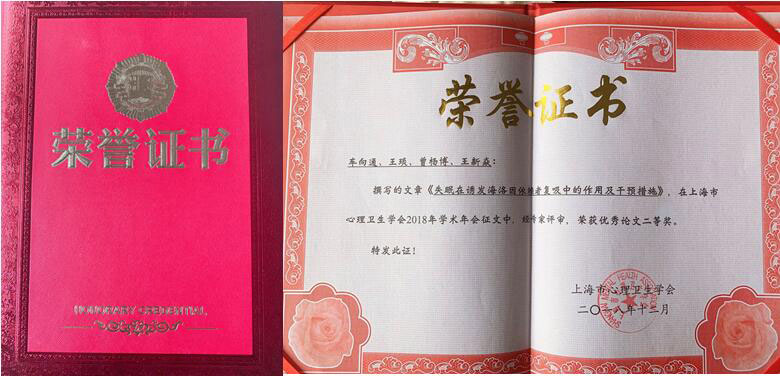 荣誉证书
HONORARY CREDENTIAL
荣誉证书
车向通、王琰、曾杨博、王新焱:
撰写的文章《失眠在诱发海洛因依赖者复吸中的作用及干预措施》，在上海市
心理卫生学会2018年学术年会征文中，经专家评审，荣获优秀论文二等奖。
特发此证!
上海市心理卫生学会
二〇一八年十二月